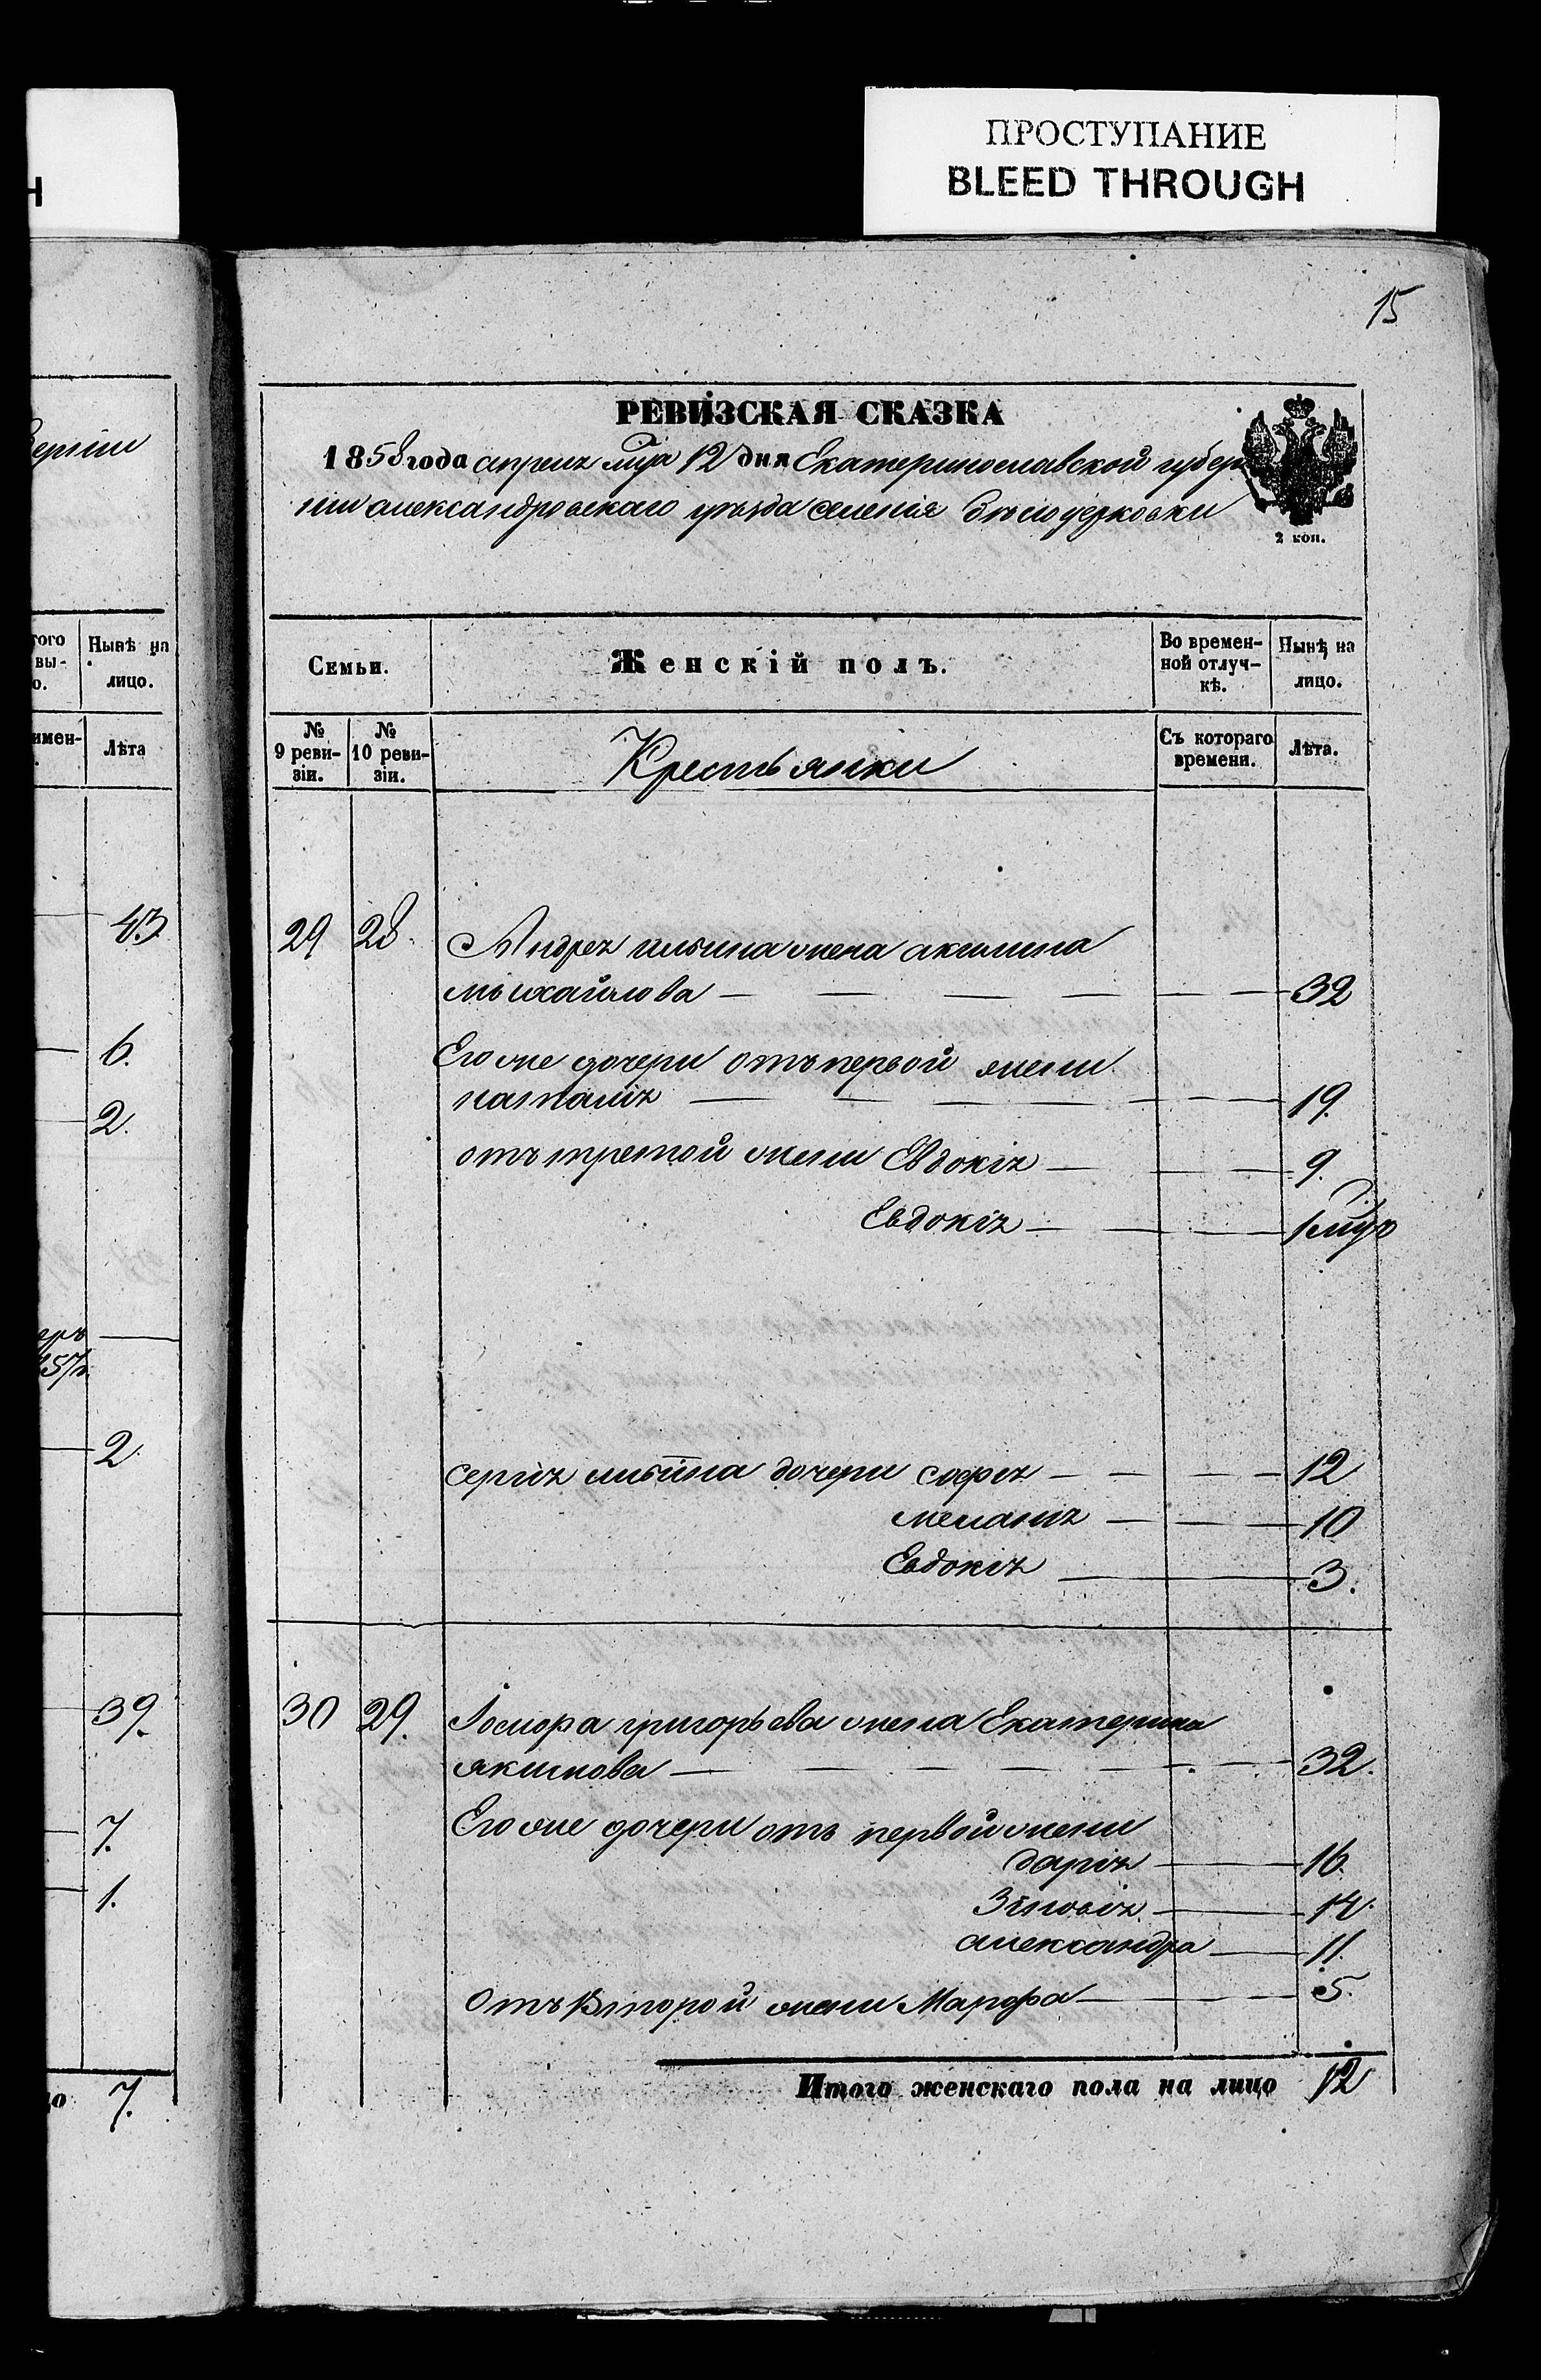 ПРОСТУПАНИЕ
BLEED THROUGH
Н
15
РЕВИЗСКАЯ СКАЗКА
1858 года апреля мца 12 дня Екатеринославской губер
нии александровскаго уѣзда селенія бѣлоцерковки
2 коп.
Семьи.
Женскій полъ.
Во времен-
ной отлуч-
кѣ.
Нынѣ на
лицо.
№
9 реви-
зіи.
№
10 реви-
зіи.
Крестьянки
Съ котораго
времени.
Лѣта.
29 28. Андрея ильина жена акилина
михайлова — 32
Его же дочери отъ первой жены
наталія — 19.
отъ третой жены Евдокія — 9.
Евдокія — 1 мцъ
сергія ильина дочери софія — 12
меланія — 10
Евдокія — 3.
30 29. григорьева жена Екатерина
якимова — 32.
Его же дочери отъ первой жены
дарія — 16.
Зиновія — 14.
александра — 11.
Отъ второй жены Марфа — 5.
Итого женскаго пола на лицо 12
того
вы-
о.
Нынѣ на
лицо.
имен-
Лѣта
43
6.
2.
57
2
39.
7.
1.
7.